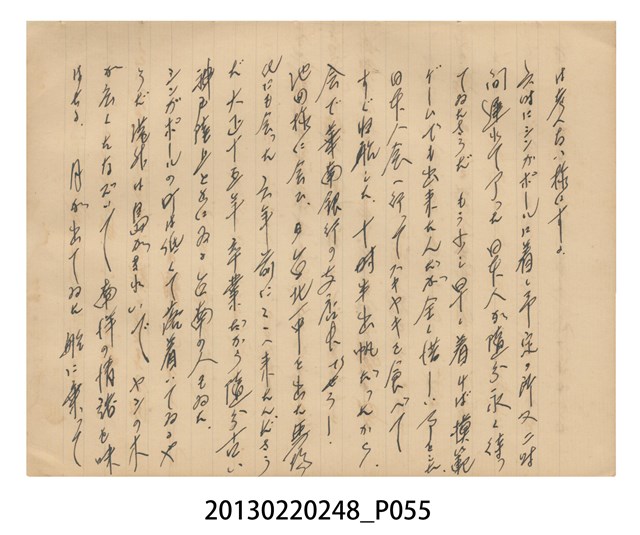 は 様にする。
六時にシンガポールに着く予定の所又二時
間遅れて了った 日本人が随分永く待っ
てゐたさうだ もう少し早く着けば模範
ゲームでも出来たんだが全く惜しい
日本人会へ行ってスキヤキを食べて
すぐ帰船した。十時半出帆だったから。
会で華南銀行の支店
池田様に会ふ、台北一中を出た
にも会った 去年 前にここへ来たんださう
だ 大正十五年卒業だから随分古い
神戸 台南の人もゐた。
シンガポールの町は低くて落着いてゐるや
うだ 港外は島がきれいで ヤシの木
が 南洋の情緒も味
はせる。 月が出てゐた 船に乗って
20130220248_P055